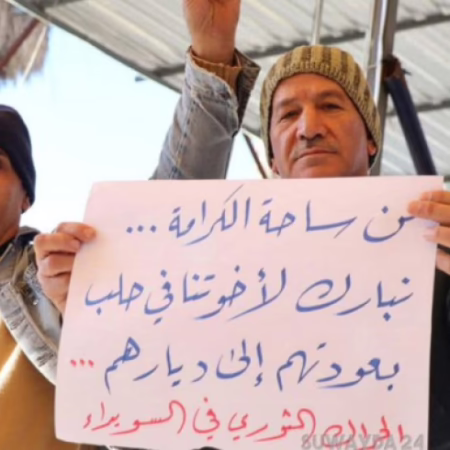 من ساحة الكرامة ...
نبارك لأخوتنا في حلب
بعودتهم إلى ديارهم ...
الحراك الثوري في السويداء
SUWAYDA 24